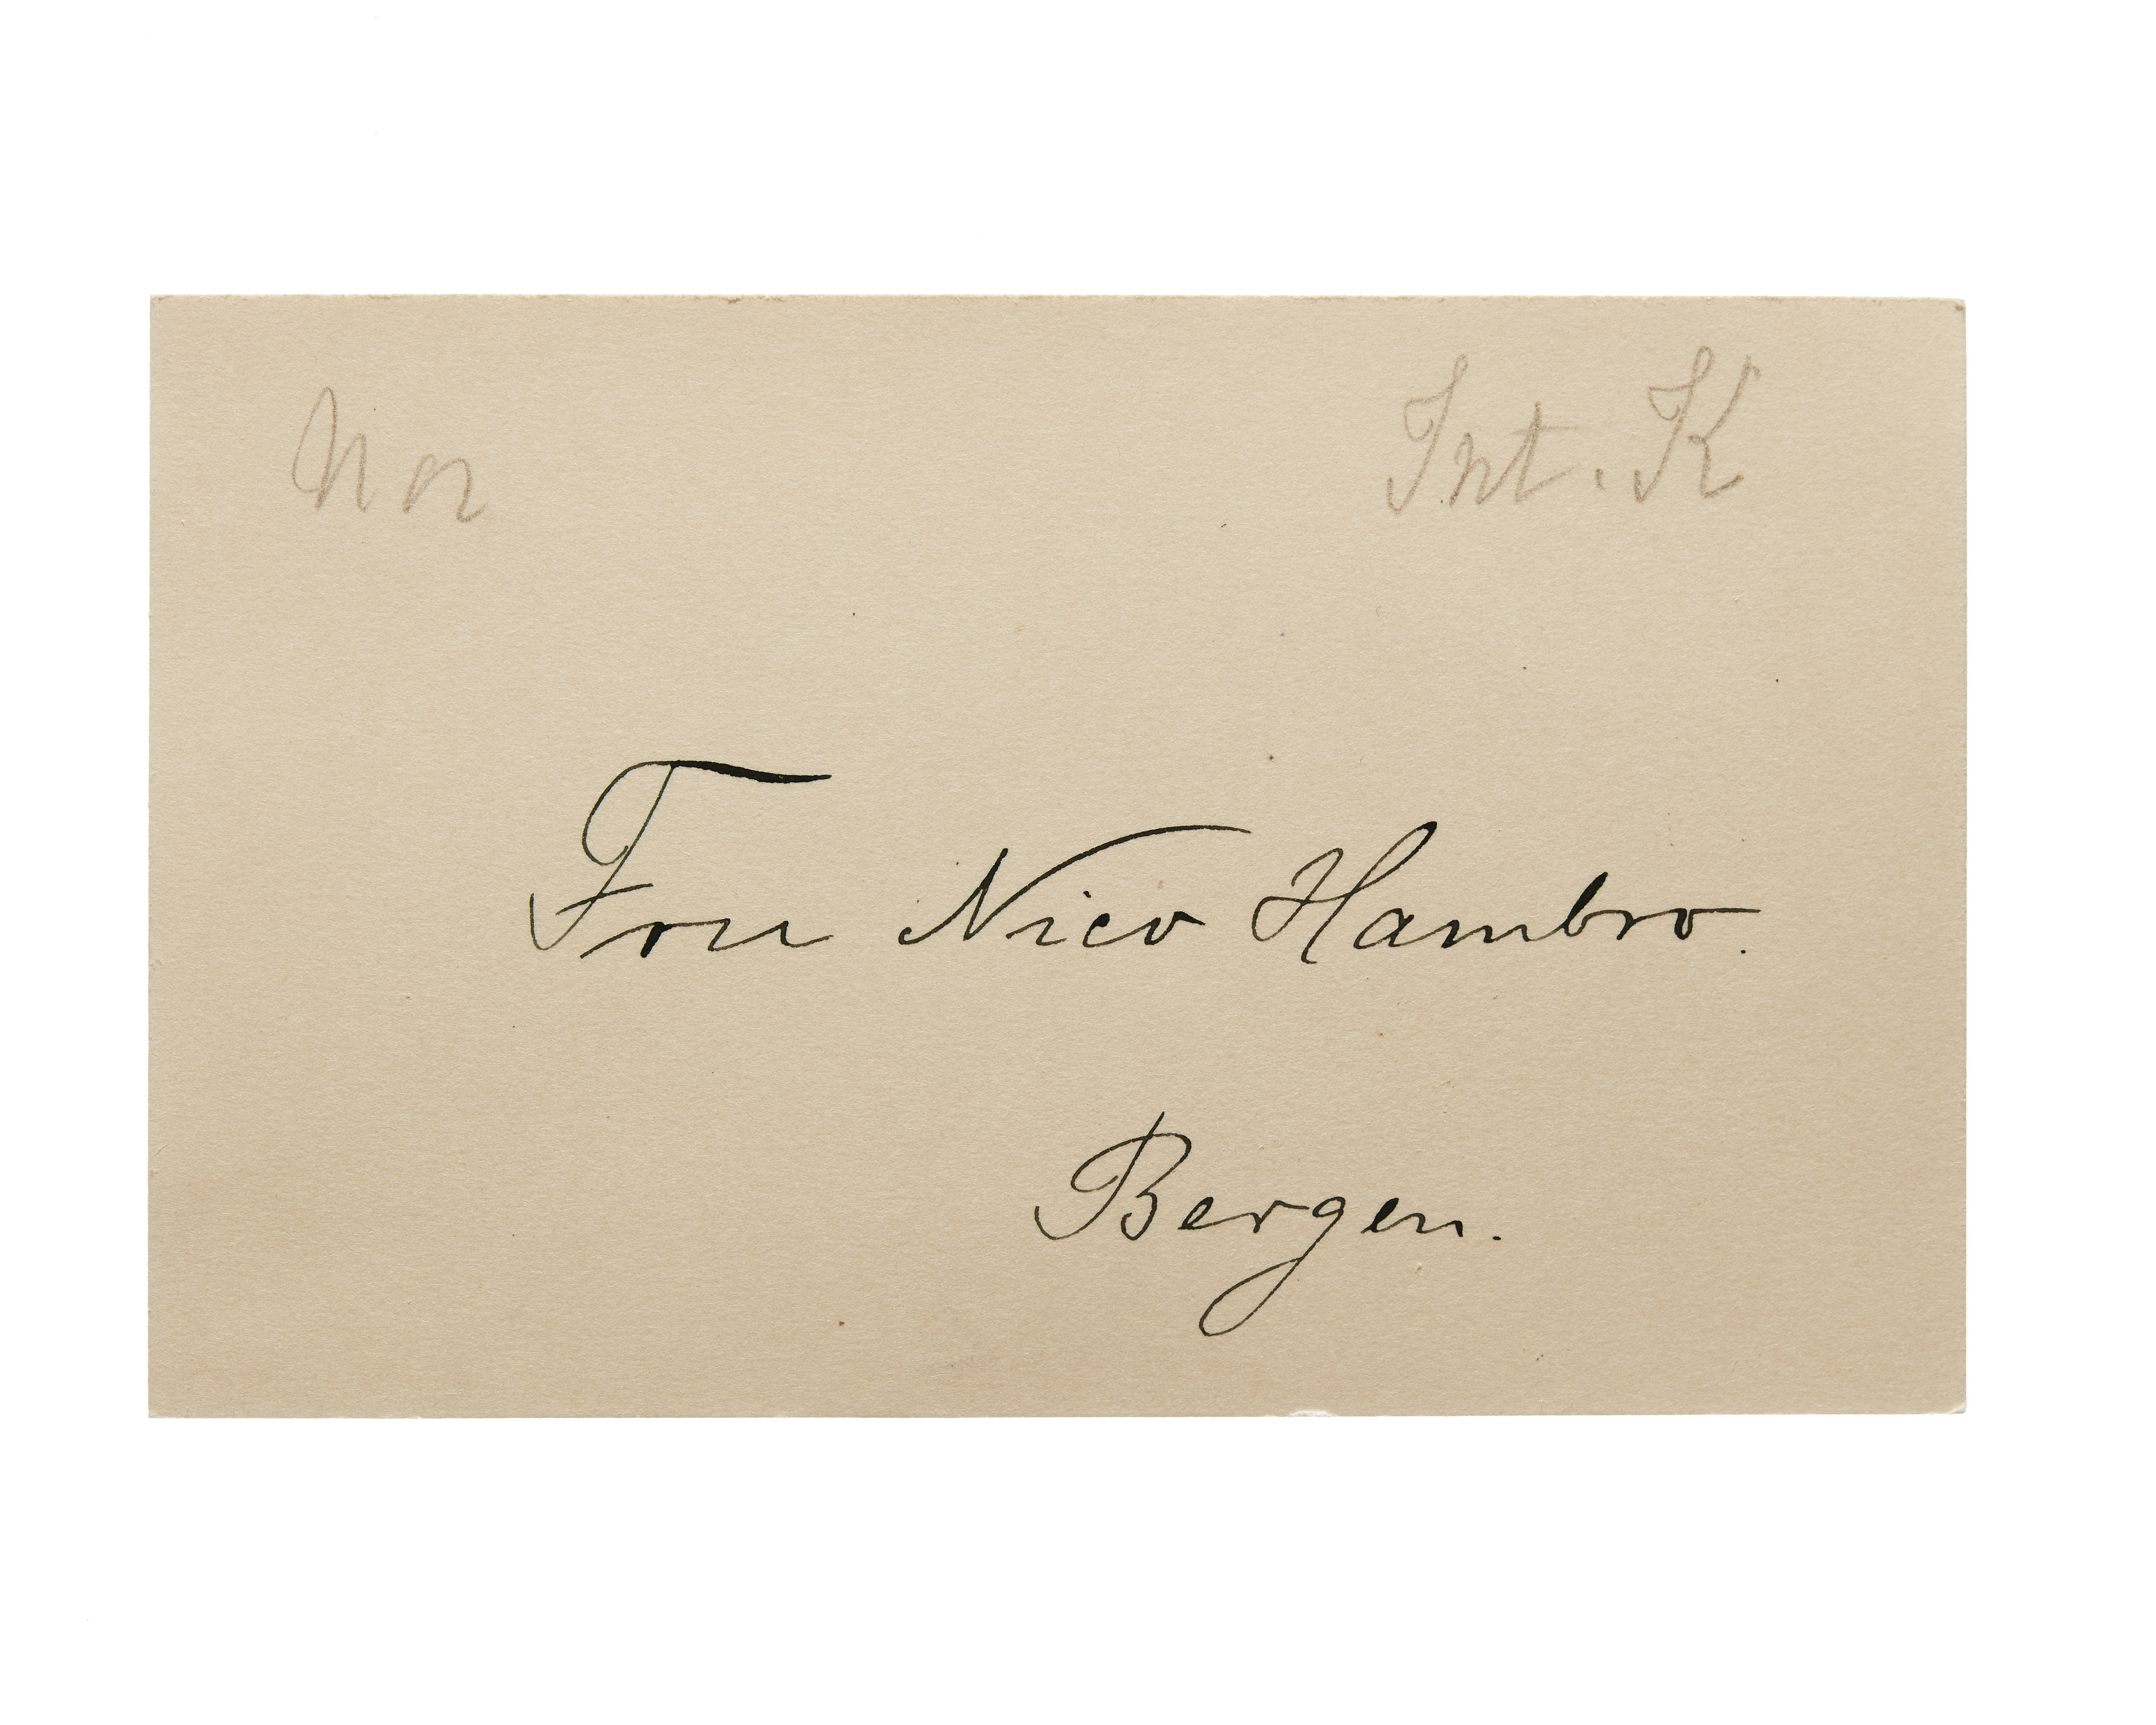 Nor Int. K
Fru Nico Hambro.
Bergen.